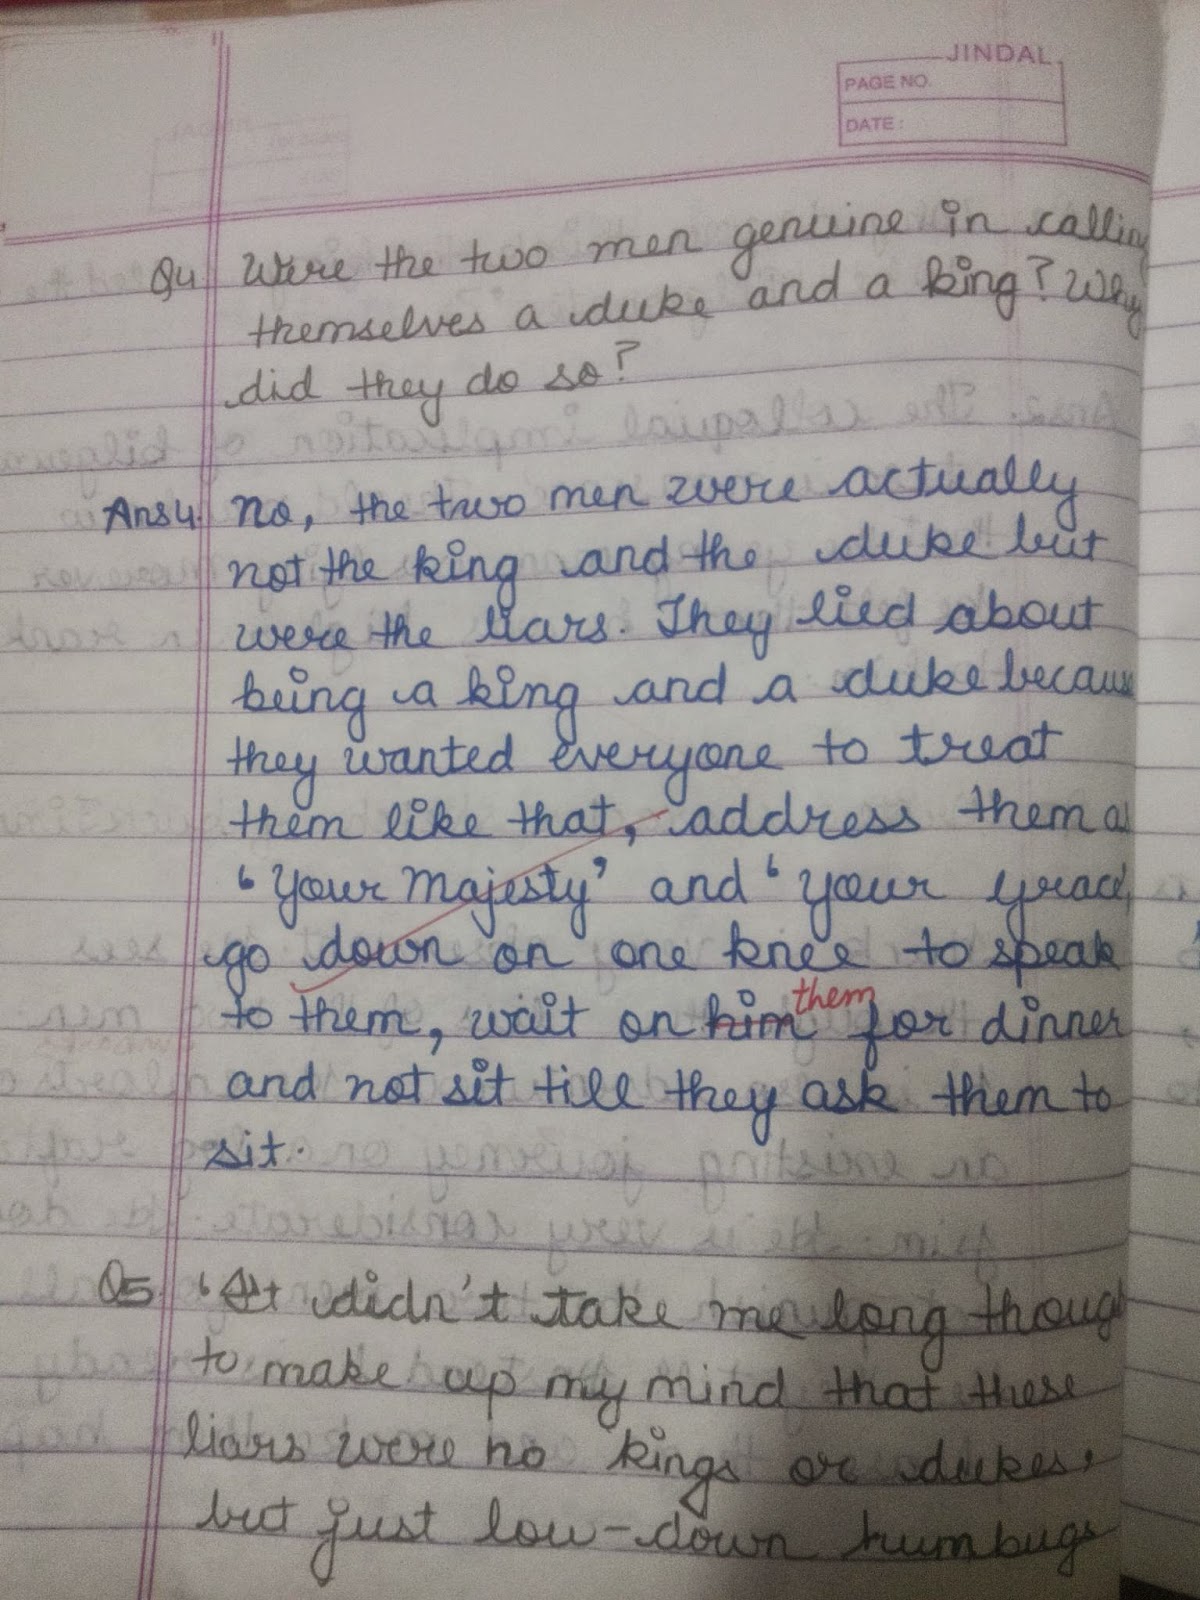 JINDAL
PAGE NO.
DATE :
Q4 Were the two men genuine in calling
themselves a duke and a king? Why
did they do so?
Ans4. No, the two men were actually
not the king and the duke but
were the liars. They lied about
being a king and a duke because
they wanted everyone to treat
them like that, address them as
'Your Majesty' and 'Your Grace'
go down on one knee to speak
to them, wait on him them for dinner
and not sit till they ask them to
sit.
Q5 'It didn't take me long though
to make up my mind that these
liars were no kings or dukes,
but just low-down humbugs